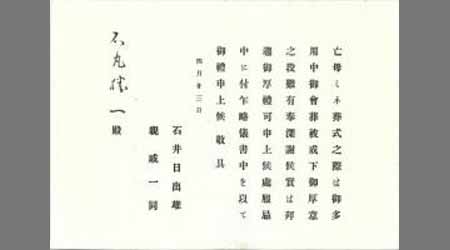 亡母ミネ葬式之際は御多
用中御會葬被成下御厚意
之段難有奉深謝候實は拜
趨御厚禮可申上候處服忌
中に付乍略儀書中を以て
御禮申上候 敬具
四月廿三日
石井日出雄
親戚一同
石丸 一殿